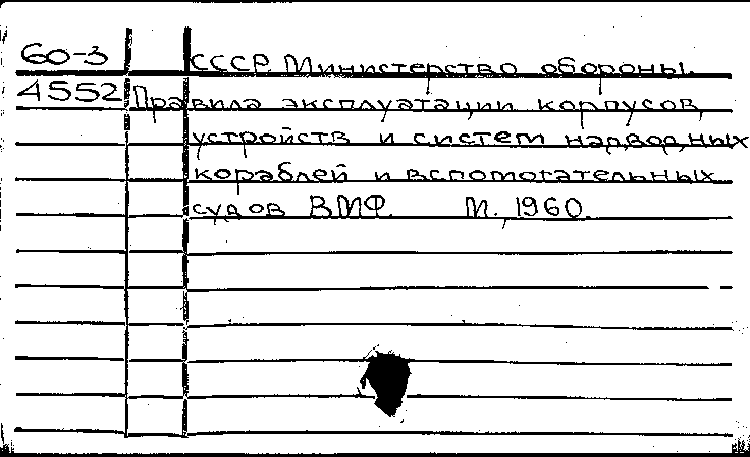 60-3 СССР. Министерство обороны.
4552 Правила эксплуатации корпусов,
устройств и систем надводных
кораблей и вспомогательных
судов ВМФ. М., 1960.